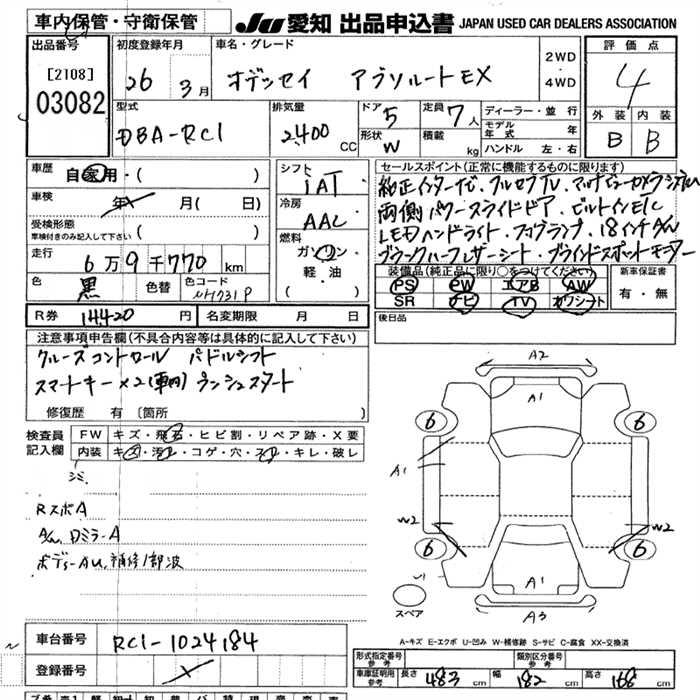 車内保管・守衛保管
JU 愛知 出品申込書 JAPAN USED CAR DEALERS ASSOCIATION
出品番号 [2108] 03082
初度登録年月 26 3月
車名・グレード オデッセイ アブソルートEX
2WD・4WD
評価点 4
外装 B 内装 B
型式 DBA-RC1
排気量 2,400 CC
ドア 5 形状 W
定員 7人 積載 kg
ディーラー・並行
モデル年式 年
ハンドル 左・右
車歴 自家用・( )
車検 年 月( 日)
受検形態 車検付きのみ記入して下さい ( )
走行 6万9千770 km
色 黒 色替 色コード NH731P
シフト IAT
冷房 AAC
燃料 ガソリン・軽油 ( )
セールスポイント(正常に機能するものに限ります)
純正インターナビ、フルセグTV、マルチビューカメラシステム
両側パワースライドドア、ビルトインETC
LEDヘッドライト、フォグランプ、18インチAW
ブラックハーフレザーシート、ブラインドスポットモニター
装備品(純正品に限り○をつけてください)
PS PW エアB AW
SR ナビ TV カワシート
新車保証書 有・無
R券 14420円 名変期限 月 日
後日品
注意事項申告欄(不具合内容等は具体的に記入して下さい)
クルーズコントロール パドルシフト
スマートキー×2(車内) プッシュスタート
修復歴 有〔箇所 〕
検査員記入欄
FW キズ・飛石・ヒビ割・リペア跡・X要
内装 キズ・汚レ・コゲ・穴・スレ・キレ・破レ
シミ
RスポA
AW、DミラーA
ボデーAU、補修1部波
A2
A1
6 6
A1
W2 W2
6 6
A1
A3
スペア
A-キズ E-エクボ U-凹み W-補修跡 S-サビ C-腐食 XX-交換済
車台番号 RC1-1024184
登録番号
形式指定番号 参考 類別区分番号 参考
車庫証明用参考 長さ 483 cm 幅 182 cm 高さ 168 cm